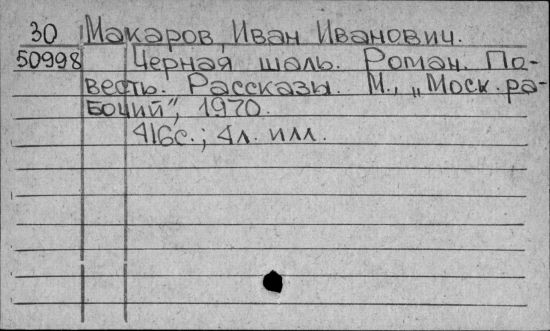 30 Макаров, Иван Иванович.
50998 Черная шаль. Роман. По-
весть. Рассказы. М., „Моск. ра-
бочий", 1970.
416с.; 4л. илл.